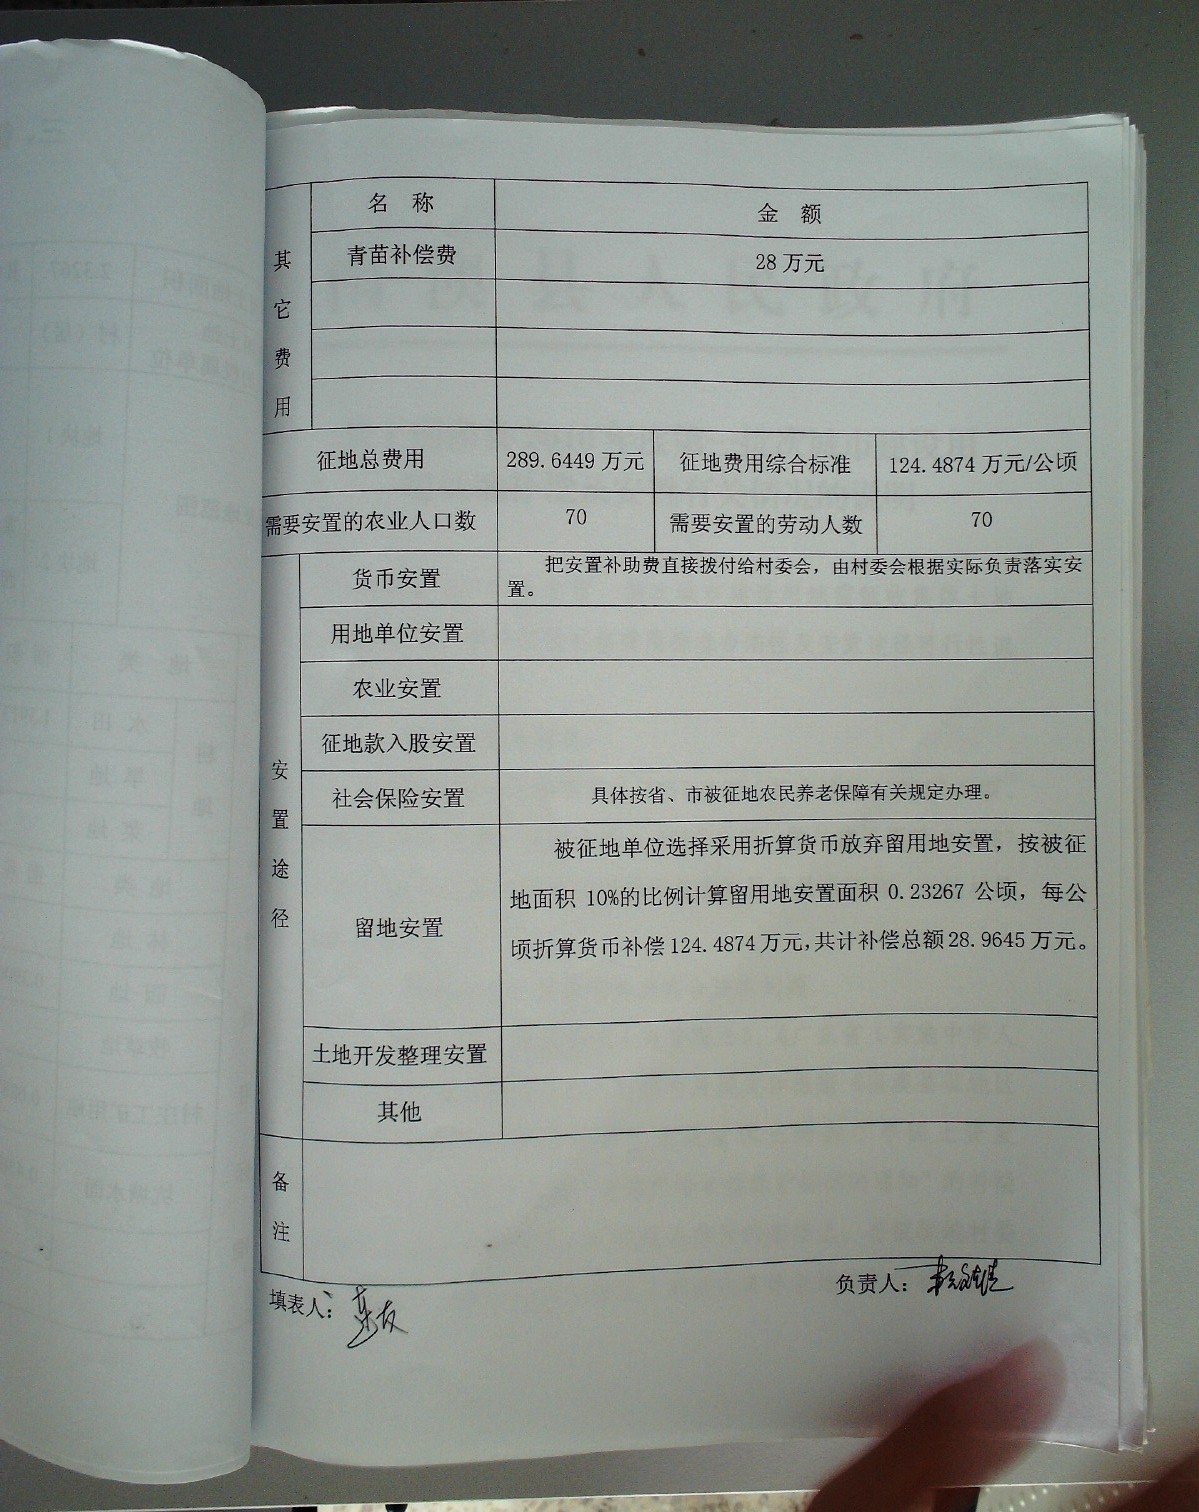 其它费用
名 称
金 额
青苗补偿费
28万元
征地总费用
289.6449 万元
征地费用综合标准
124.4874 万元/公顷
需要安置的农业人口数
70
需要安置的劳动人数
70
安置途径
货币安置
把安置补助费直接拨付给村委会，由村委会根据实际负责落实安
置。
用地单位安置
农业安置
征地款入股安置
社会保险安置
具体按省、市被征地农民养老保障有关规定办理。
留地安置
被征地单位选择采用折算货币放弃留用地安置，按被征
地面积 10%的比例计算留用地安置面积 0.23267 公顷，每公
顷折算货币补偿 124.4874 万元,共计补偿总额28.9645 万元。
土地开发整理安置
其他
备注
填表人：
负责人：